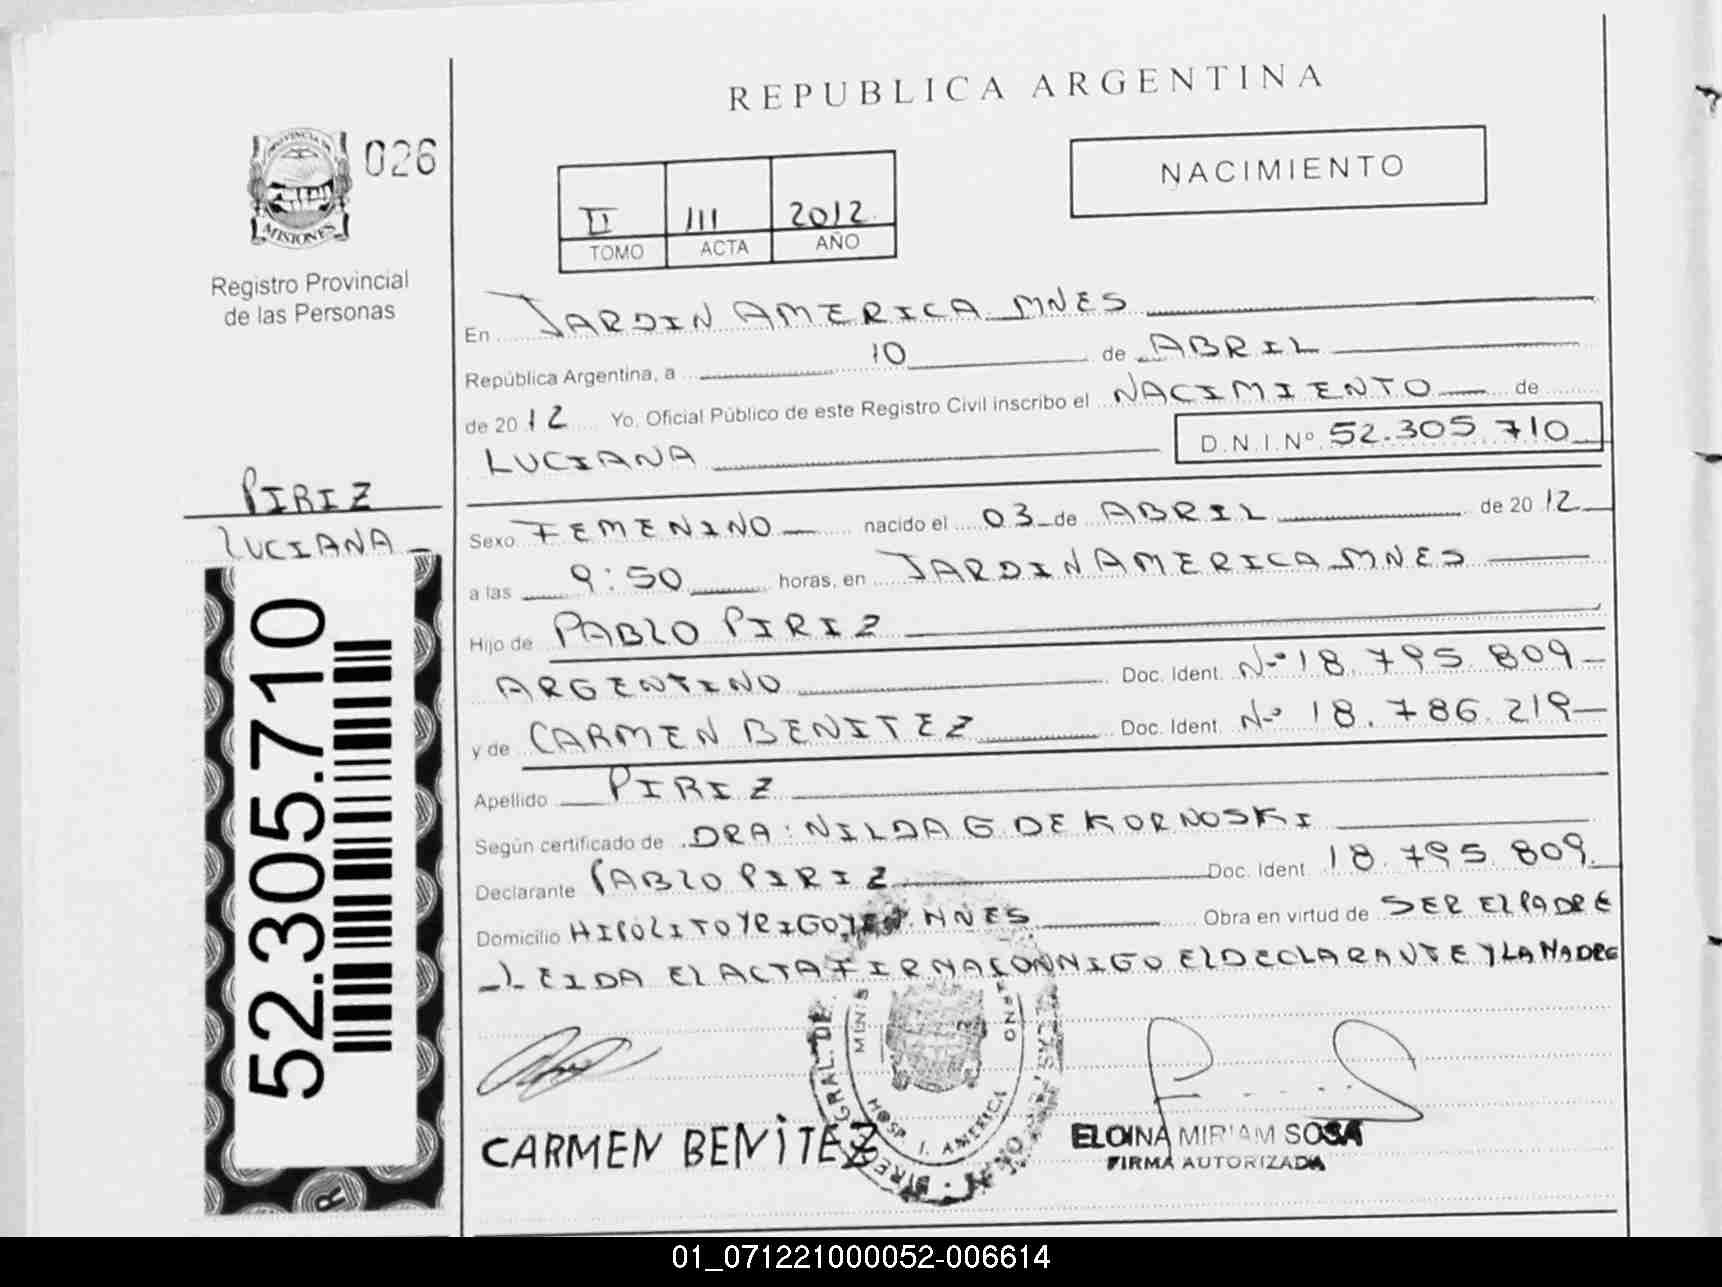 REPUBLICA ARGENTINA
PROVINCIA DE
MISIONES
026
NACIMIENTO
II III 2012
TOMO ACTA AÑO
Registro Provincial
de las Personas
En JARDIN AMERICA MNES
República Argentina, a 10 de ABRIL
de 2012 Yo, Oficial Público de este Registro Civil inscribo el NACIMIENTO de
LUCIANA D.N.I.Nº 52.305.710
PIRIZ
LUCIANA
Sexo FEMENINO nacido el 03 de ABRIL de 2012
a las 9:50 horas, en JARDIN AMERICA MNES
Hijo de PABLO PIRIZ
ARGENTINO Doc. Ident. Nº 18.795.809
y de CARMEN BENITEZ Doc. Ident. Nº 18.786.219
Apellido PIRIZ
Según certificado de DRA: NILDA G DE KORNOSKI
Declarante PABLO PIRIZ Doc. Ident 18.795.809
Domicilio HIPÓLITO YRIGOYEN MNES Obra en virtud de SER EL PADRE
LEIDA EL ACTA FIRMA CONMIGO EL DECLARANTE Y LA MADRE
52.305.710
GRAL. DE
MINIS
HOSP. J. AMERICA
CARMEN BENITEZ
ELOINA MIRIAM SOSA
FIRMA AUTORIZADA
R
01_071221000052-006614